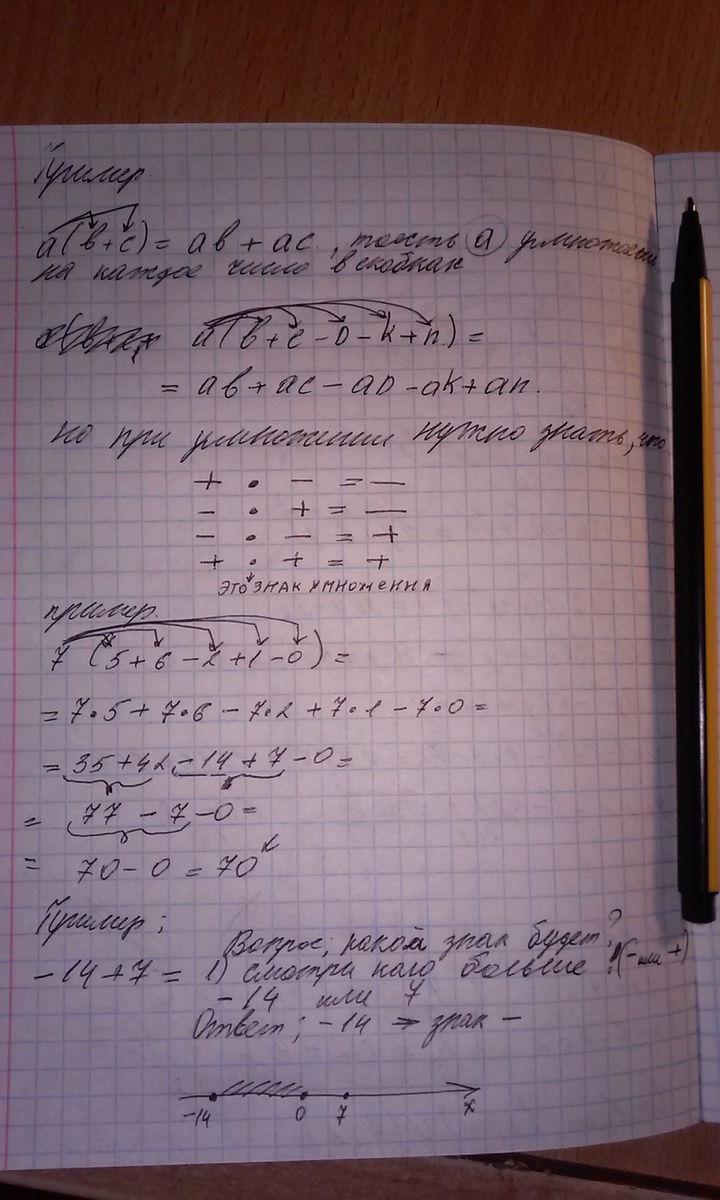 Пример
а(в+с) = ав + ас, тоесть а умножаем
на каждое число в скобках
а(в+с-D-k+n) =
= ав+ас-аD-аk+аn.
но при умножении нужно знать, что
+ • - = -
- • + = -
- • - = +
+ • + = +
это знак умножения
пример.
7 (5+6-2+1-0) =
= 7•5 + 7•6 - 7•2 + 7•1 - 7•0 =
= 35+42-14+7-0=
= 77 - 7 - 0 =
= 70 - 0 = 70
Пример;
Вопрос; какой знак будет?
-14+7 = 1) смотри кого больше (- или +)
-14 или 7
Ответ; -14 ⇒ знак -
-14 0 7 x